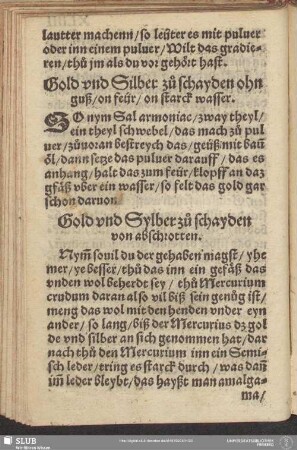 lautter machenn/ so leüter es mit puluer
oder inn einem puluer/ Wilt das gradie-
ren/ thů jm als du vor gehört hast.
Gold vnd Silber zů schayden ohn
guß/ on feür/ on starck wasser.
SO nym Sal armoniac/ zway theyl/
ein theyl schwebel/ das mach zů pul
uer/ zůuoran bestreych das/ geüß mit bau͂
öl/ dann setze das puluer darauff/ das es
anhang/ halt das zum feür/ klopff an daz
gfäß vber ein wasser/ so felt das gold gar
schon daruon.
Gold vnd Sylber zů schayden
von abschrotten.
Nym͂ souil du der gehaben magst/ yhe
mer/ ye besser/ thů das inn ein gefäß das
vnden wol beherdt sey/ thů Mercurium
crudum daran also vil biß sein genůg ist/
meng das wol mit den henden vnder eyn
ander/ so lang/ biß der Mercurius dz gol
de vnd silber an sich genommen hat/ dar
nach thů den Mercurium inn ein Semi-
sch leder/ tring es starck durch/ was dan͂
im͂ leder bleybt/ das hayßt man amalga-
ma/
SLUB